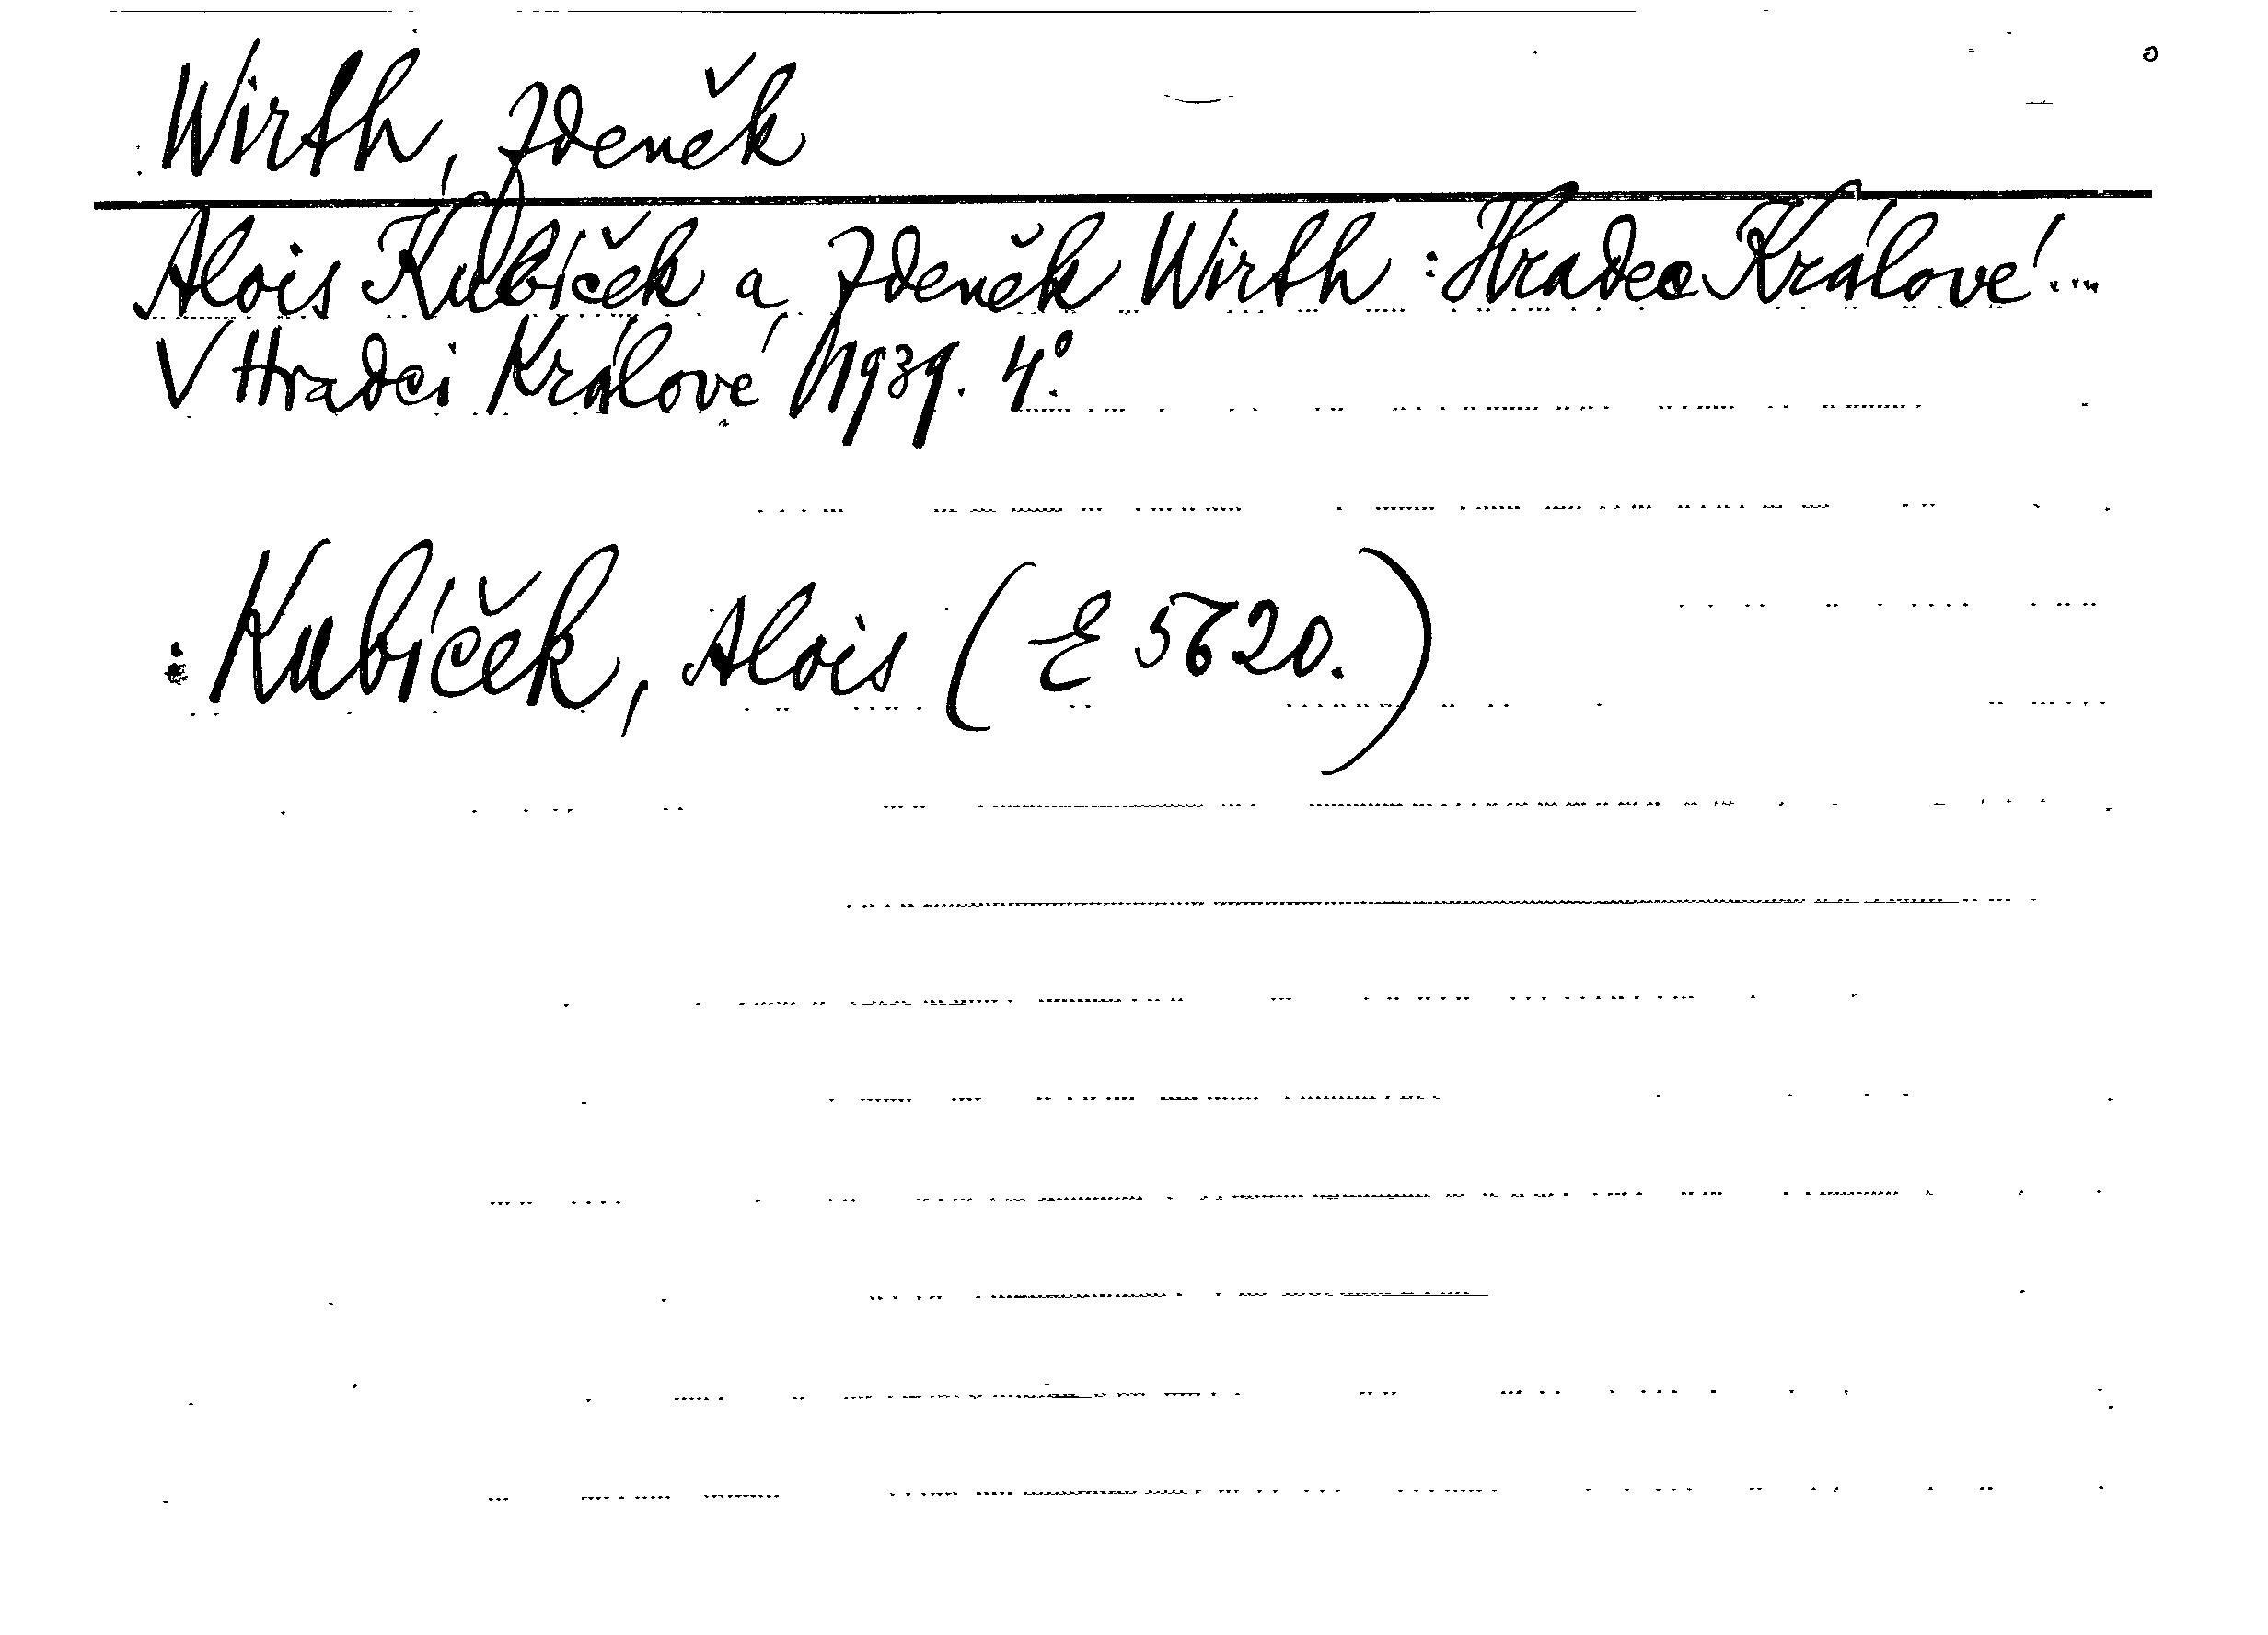 Wirth, Zdeněk
Alois Kubíček a Zdeněk Wirth : Hradec Králové ...
V Hradci Králové 1939. 4°.
: Kubíček, Alois (E 5620.)